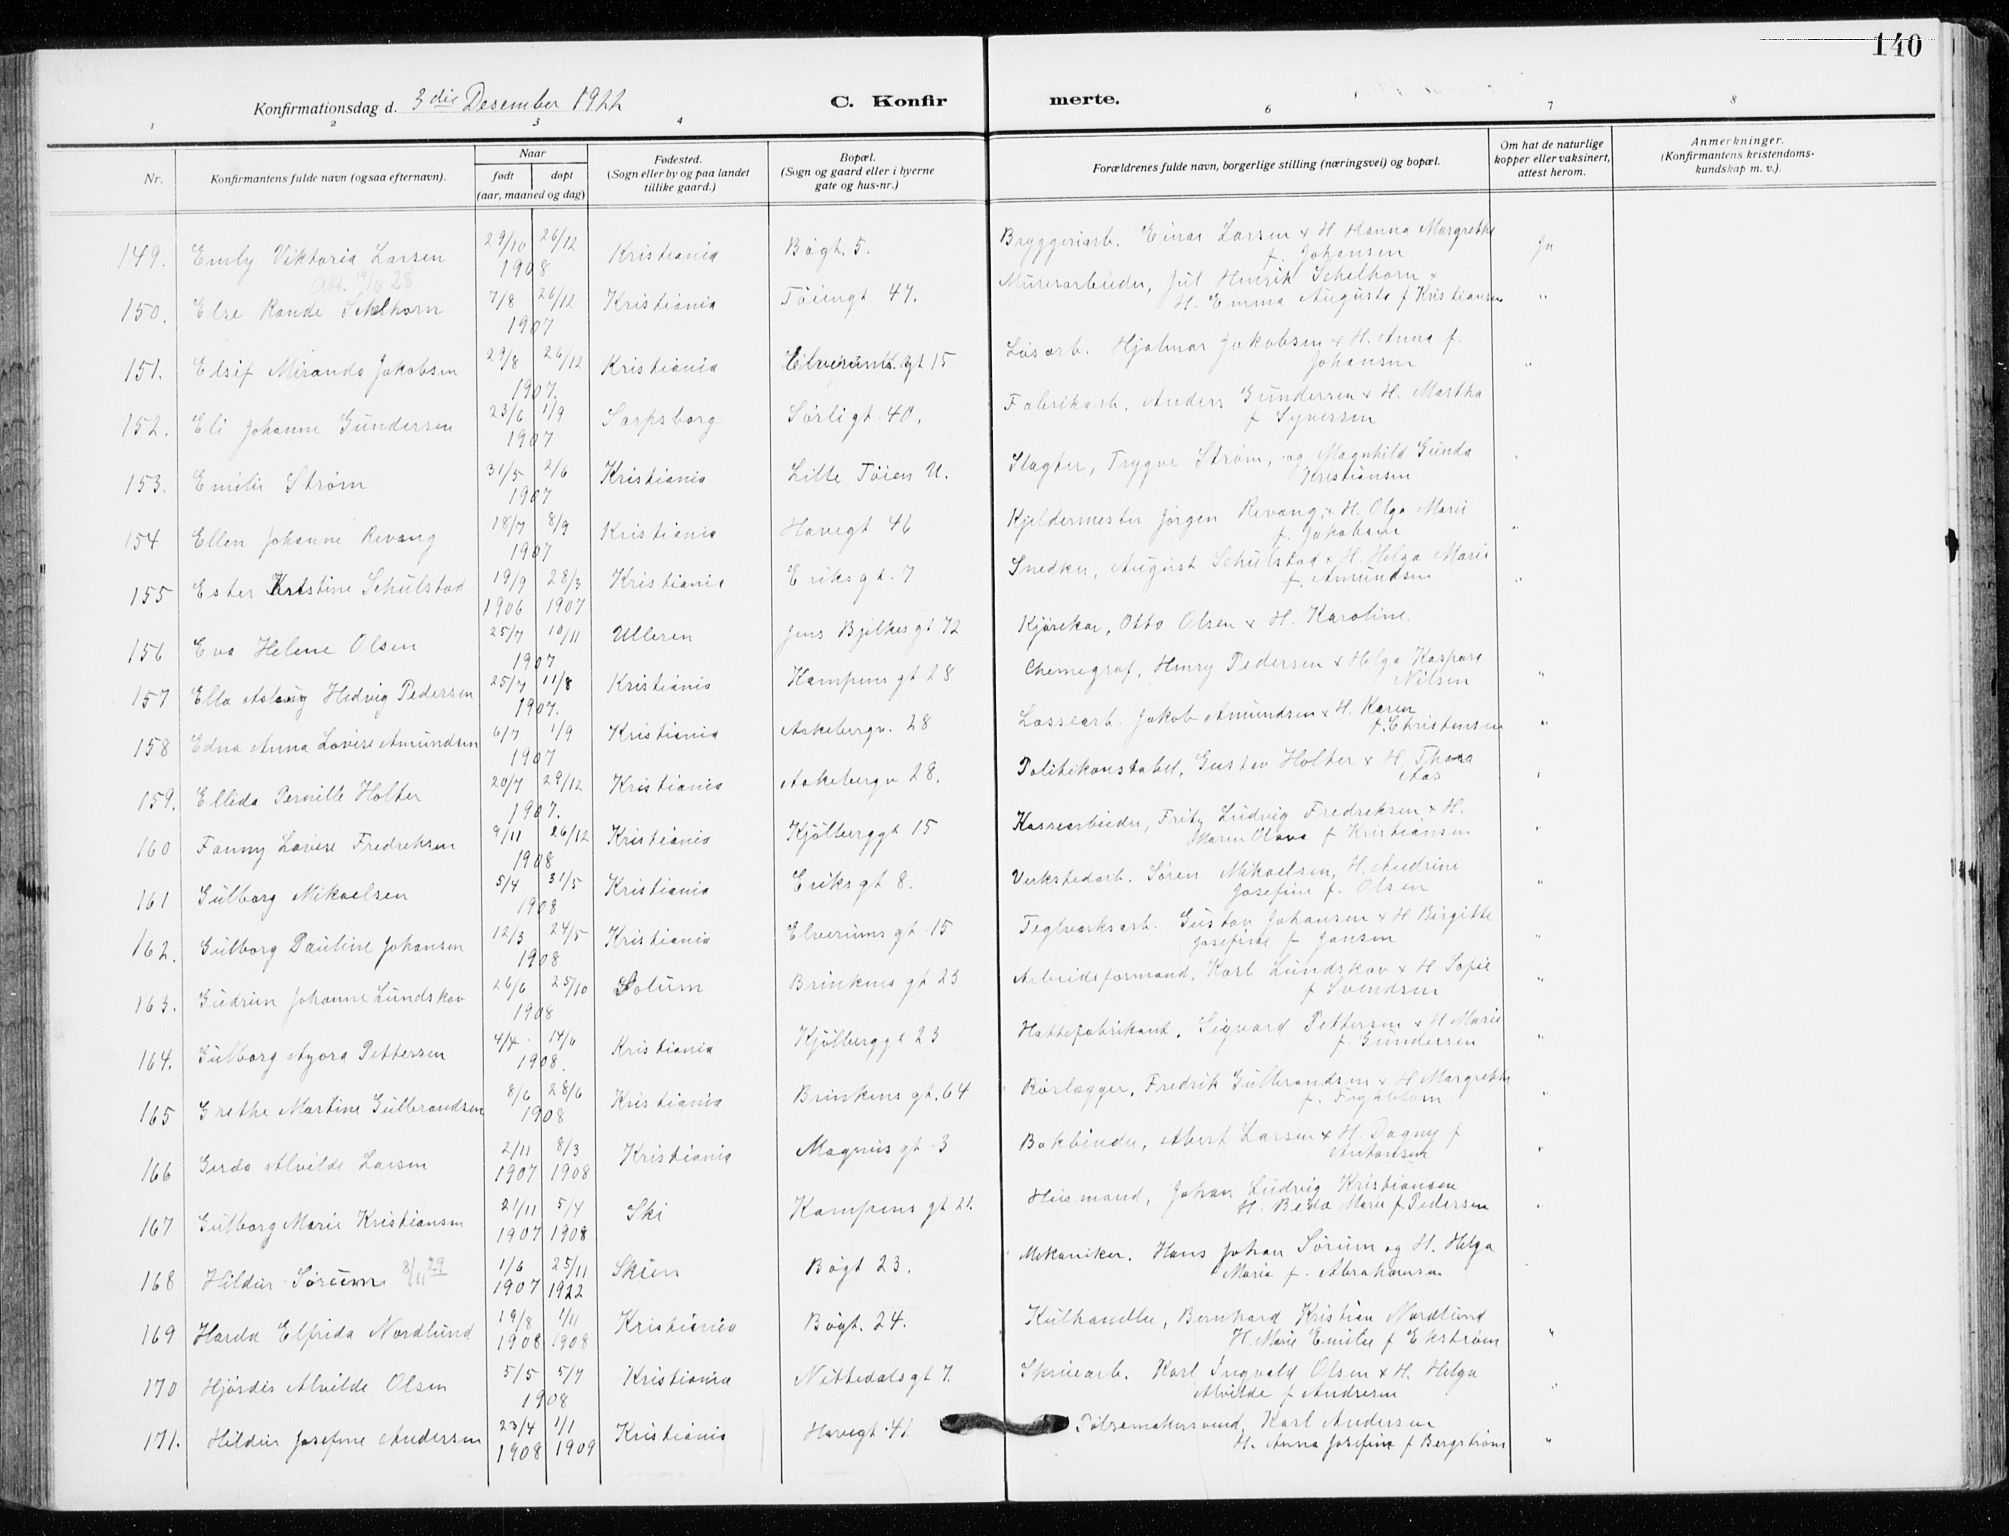 140
Konfirmationsdag d. 3die Desember 1922
C. Konfir merte.
1 2 3 4 6 7 8
Nr.
Konfirmantens fulde navn (ogsaa efternavn).
Naar
født døpt
(aar, maaned og dag)
Fødested.
(Sogn eller by og paa landet
tillike gaard.)
Bopæl.
(Sogn og gaard eller i byerne
gate og hus-nr.)
Forældrenes fulde navn, borgerlige stilling (næringsvei) og bopæl.
Om hat de naturlige
kopper eller vaksinert,
attest herom.
Anmerkninger.
(Konfirmantens kristendoms-
kundskap m. v.).
149. Emily Viktoria Larsen 29/10 26/12 1908 Kristiania Bøgt. 5. Bryggeriarb. Einar Larsen & H Hanna Margrethe Ja
f. Johansen
Att. 19/6 28
150. Else Rande Schelhorn 7/8 26/12 1907 Kristiania Töiengt 47. Murerarbeider, Jul Henrik Schelhorn & "
H. Emma Augusta f Kristiansen
151. Elsif Miranda Jakobsen 29/8 26/12 1907. Kristiania Elverums gt 15 Løsarb. Hjalmar Jakobsen & H. Anna f. "
Johansen
152. Eli Johanne Gundersen 23/6 1/9 1907 Sarpsborg Sörligt 40. Fabrikarb. Anders Gundersen & H. Martha
f Syversen
153. Emilie Strøm 31/5 2/6 1907 Kristiania Lille Töien U. Slagter, Trygve Strøm, og Magnhild Gunda "
Kristiansen
154 Ellen Johanne Revang 18/7 8/9 1907 Kristiania Havegt 46 Kjeldermester Jørgen Revang & H. Olga Marie "
f. Jakobsen
155 Ester Kristine Schulstad 19/9 28/3 1906 1907 Kristiania Eriksgt. 7 Snedker, August Schulstad & H. Helga Marie "
f. Amundsen
156 Eva Helene Olsen 25/7 10/11 1907 Ulleren Jens Bjelkes gt 72 Kjørekar, Otto Olsen & H. Karoline.
157 Ella Aslaug Hedvig Pedersen 25/7 11/8 1907. Kristiania Kampens gt 28 Chemegraf, Henry Pedersen & Helga Kaspara "
Nilsen
158 Edna Anna Lovise Amundsen 6/7 1/9 1907 Kristiania Aakebergv. 28 Lossearb. Jakob Amundsen & H. Karen "
f. Christensen
159. Ellida Pernille Holter 20/7 29/12 1907. Kristiania Aakebergv 28. Politikonstabel, Gustav Holter & H. Thora "
Aas
160 Fanny Lovise Fredriksen 9/11 26/12 1908 Kristiania Kjölberggt 15 Kassearbeider, Fritz Ludvig Fredreksen & H. "
Maren Olava f Kristiansen
161 Gulborg Mikaelsen 5/4 31/5 1908 Kristiania Eriksgt 8. Verkstedarb. Søren Mikaelsen, H. Andrine "
Josefine f. Olsen
162. Gulborg Pauline Johansen 12/3 24/5 1908 Kristiania Elverums gt 15 Teglverksarb. Gustav Johansen & H Birgitte "
Josefine f Jansen
163. Gudrun Johanne Lundskov 26/6 25/10 1908 Solum Brinkens gt 23 Arbeidsformand, Karl Lundskov & H Sofie "
f Svendsen
164. Gulborg Agora Pettersen 4/4 14/6 1908. Kristiania Kjölberggt 23 Hattefabrikant, Sigvard Pettersen & H Marie "
f. Gundersen
165 Grethe Martine Gulbrandsen 8/6 28/6 1908 Kristiania Brinkens gt. 64 Rörlægger, Fredrik Gulbrandsen & H Margrethe "
166 Gerda Alvilde Larsen 2/11 8/3 1907 1908 Kristiania Magnus gt 3 Bokbinder, Albert Larsen & H. Dagny f "
Antonsen
167 Gulborg Marie Kristiansen 21/11 5/4 1907 1908 Ski Kampens gt 21. Husmand, Johan Ludvig Kristiansen "
H. Beda Marie f. Pedersen
168 Hildur Sørum 8/11 29 1/6 25/11 1907 1922 Skien Bøgt 23. Mekaniker. Hans Johan Sørum og H. Helga
Marie f. Abrahamsen
169 Harda Elfrida Nordlund 19/8 1/11 1908 1908 Kristiania Bøgt. 24. Kulhandler, Bernhard Kristian Nordlund "
H. Marie Emilie f Ekstrøm
170 Hjördis Alvilde Olsen 5/5 5/7 1908 Kristiania Nittedalsgt 7. Skruearb. Karl Ingvald Olsen & H. Helga "
Alvilde f Andresen
171. Hildur Josefine Andersen 23/4 1/1 1908 1909 Kristiania Havegt 41 Pölsemakersvend, Karl Andersen
H. Anna Josefine f Bergström "